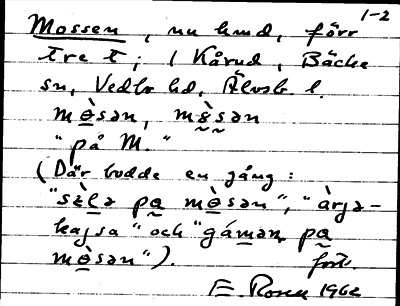 1-2
Mossen, nu hmd, förr
tre t; i Kårud, Bäcke
sn, Vedbo hd, Älvsb. l.
mɵ̀sən, mɵ̀sən
"på M."
(Där bodde en gång:
"sɛ̀lə pa mɵ̀sən", "àrjə-
kajsa" och "gámən pa
mɵ̀sən").
E. Rosen 1962